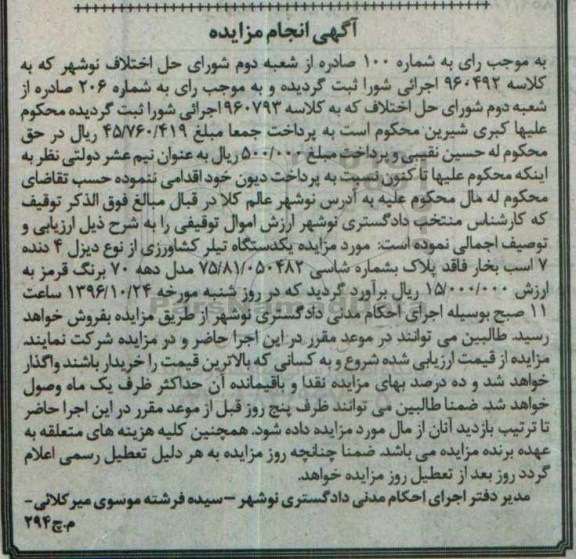 آگهی انجام مزایده
به موجب رای به شماره ۱۰۰ صادره از شعبه دوم شورای حل اختلاف نوشهر که به
کلاسه ۹۶۰۴۹۲ اجرائی شورا ثبت گردیده و به موجب رای به شماره ۲۰۶ صادره از
شعبه دوم شورای حل اختلاف که به کلاسه ۹۶۰۷۹۳ اجرائی شورا ثبت گردیده محکوم
علیها کبری شیرین محکوم است به پرداخت جمعا مبلغ ۴۵/۷۶۰/۴۱۹ ریال در حق
محکوم له حسین نقیبی و پرداخت مبلغ ۵۰۰/۰۰۰ ریال به عنوان نیم عشر دولتی نظر به
اینکه محکوم علیها تاکنون نسبت به پرداخت دیون خود اقدامی ننموده حسب تقاضای
محکوم له مال محکوم علیه به آدرس نوشهر عالم کلا در قبال مبالغ فوق الذکر توقیف
که کارشناس منتخب دادگستری نوشهر ارزش اموال توقیفی را به شرح ذیل ارزیابی و
توصیف اجمالی نموده است: مورد مزایده یکدستگاه تیلر کشاورزی از نوع دیزل ۴ دنده
۷ اسب بخار فاقد پلاک بشماره شاسی ۷۵/۸۱/۰۵۰۴۸۲ مدل دهه ۷۰ برنگ قرمز به
ارزش ۱۵/۰۰۰/۰۰۰ ریال برآورد گردید که در روز شنبه مورخه ۱۳۹۶/۱۰/۲۴ ساعت
۱۱ صبح بوسیله اجرای احکام مدنی دادگستری نوشهر از طریق مزایده بفروش خواهد
رسید. طالبین می توانند در موعد مقرر در این اجرا حاضر و در مزایده شرکت نمایند.
مزایده از قیمت ارزیابی شده شروع و به کسانی که بالاترین قیمت را خریدار باشند واگذار
خواهد شد و ده درصد بهای مزایده نقدا و باقیمانده آن حداکثر ظرف یک ماه وصول
خواهد شد. ضمنا طالبین می توانند ظرف پنج روز قبل از موعد مقرر در این اجرا حاضر
تا ترتیب بازدید آنان از مال مورد مزایده داده شود. همچنین کلیه هزینه های متعلقه به
عهده برنده مزایده می باشد. ضمنا چنانچه روز مزایده به هر دلیل تعطیل رسمی اعلام
گردد روز بعد از تعطیل روز مزایده خواهد.
مدیر دفتر اجرای احکام مدنی دادگستری نوشهر – سیده فرشته موسوی میرکلائی –
م.چ ۲۹۴